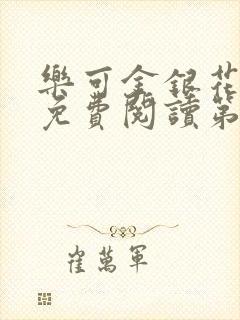 樂可金銀花
免費閱讀第
崔萬軍